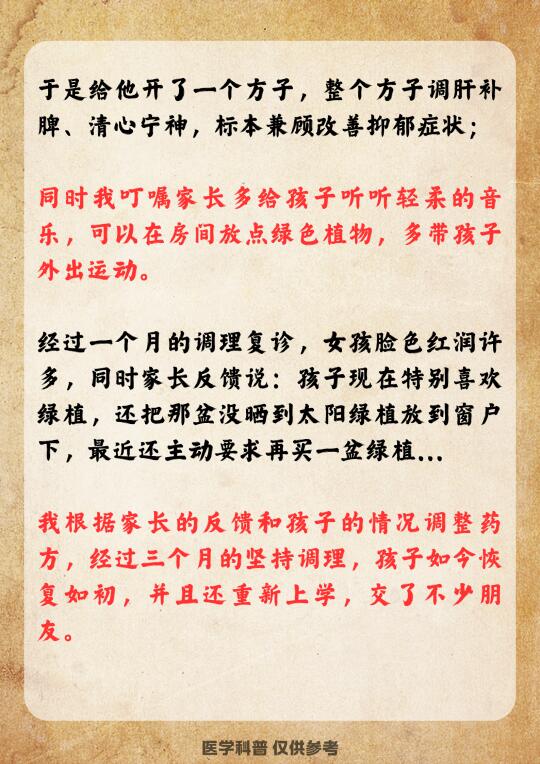 于是给他开了一个方子，整个方子调肝补
脾、清心宁神，标本兼顾改善抑郁症状；
同时我叮嘱家长多给孩子听听轻柔的音
乐，可以在房间放点绿色植物，多带孩子
外出运动。
经过一个月的调理复诊，女孩脸色红润许
多，同时家长反馈说：孩子现在特别喜欢
绿植，还把那盆没晒到太阳绿植放到窗户
下，最近还主动要求再买一盆绿植...
我根据家长的反馈和孩子的情况调整药
方，经过三个月的坚持调理，孩子如今恢
复如初，并且还重新上学，交了不少朋
友。
医学科普 仅供参考